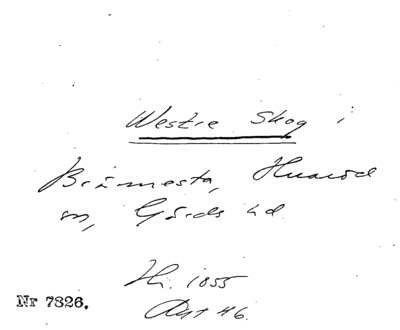 Westre Skog i
Brämesta, Huaröd
sn, Gärds hd.
Hi. 1855
Ant 46.
Nr 7826.